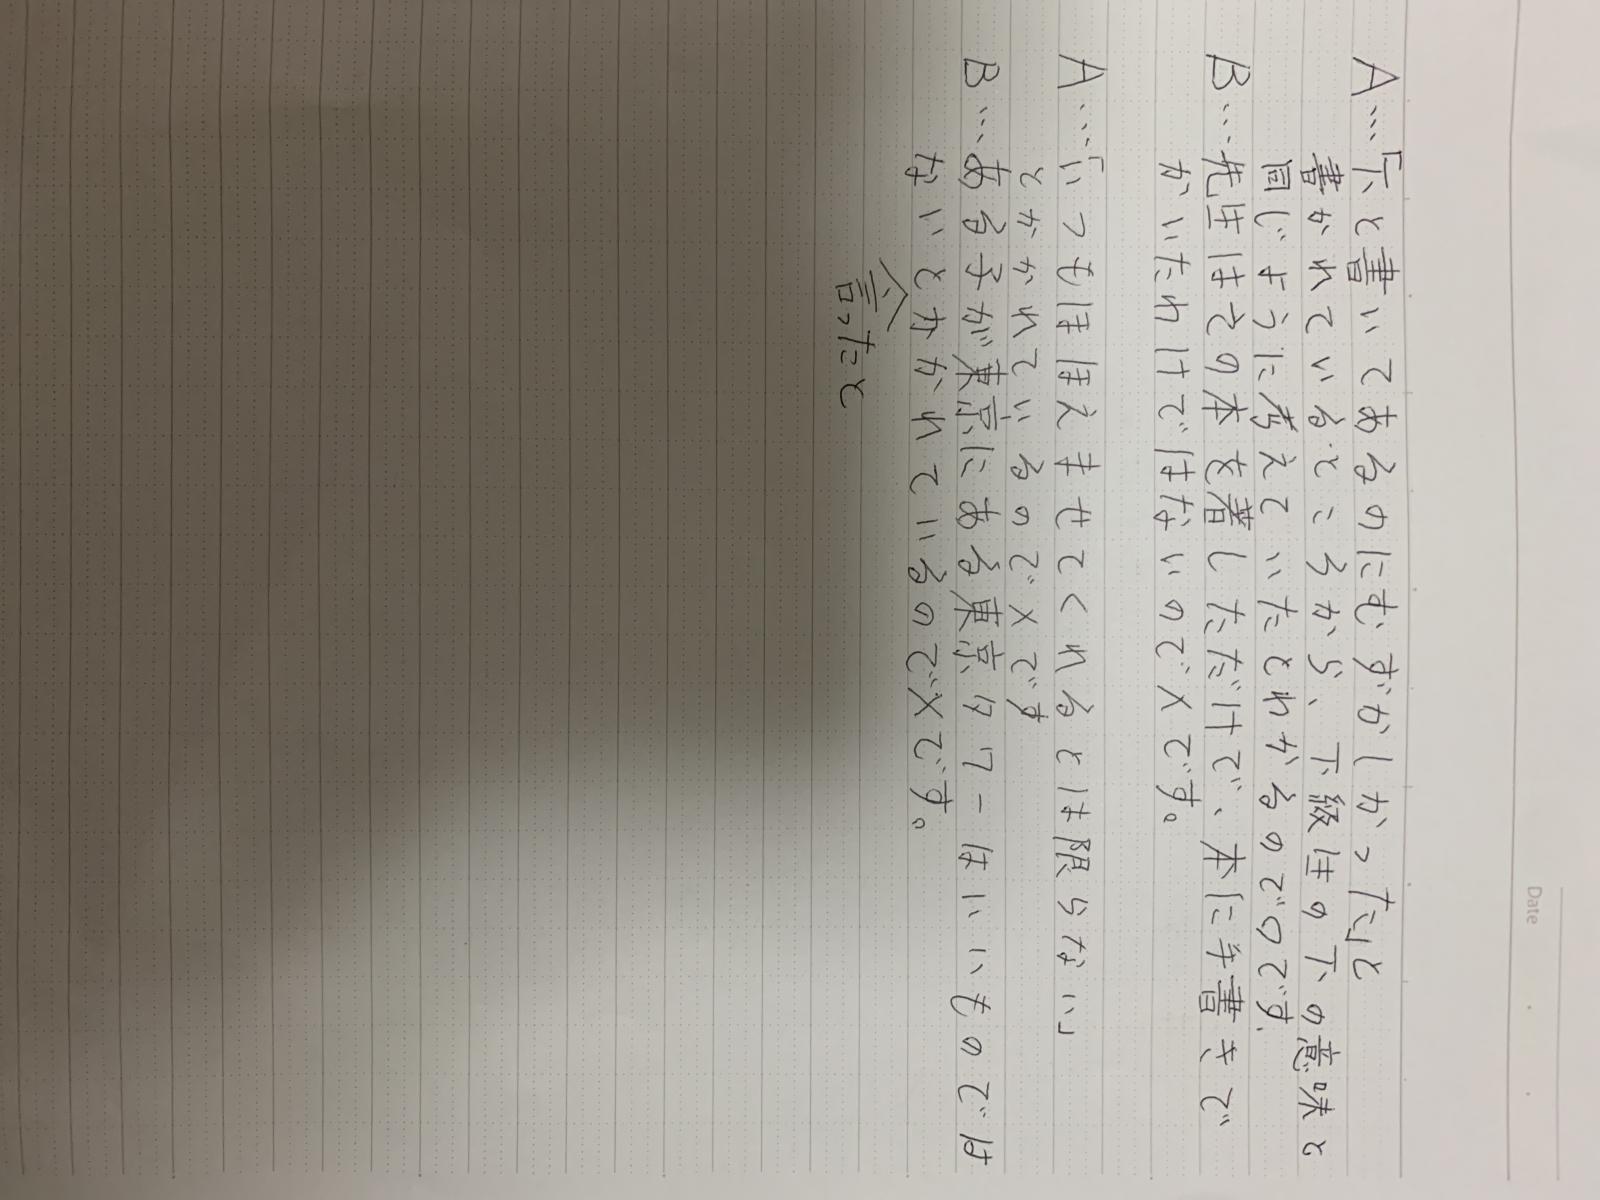 Date
A…「下と書いてあるのにむずかしかった」と
書かれているところから、下級生の下の意味と
同じように考えていたとわかるので○です.
B…先生はその本を著しただけで、本に手書きで
かいたわけではないので×です。
A…「いつもほほえませてくれるとは限らない」
とかかれているので×です
B…ある子が東京にある東京タワーはいいものでは
ないとかかれているので×です。
言ったと